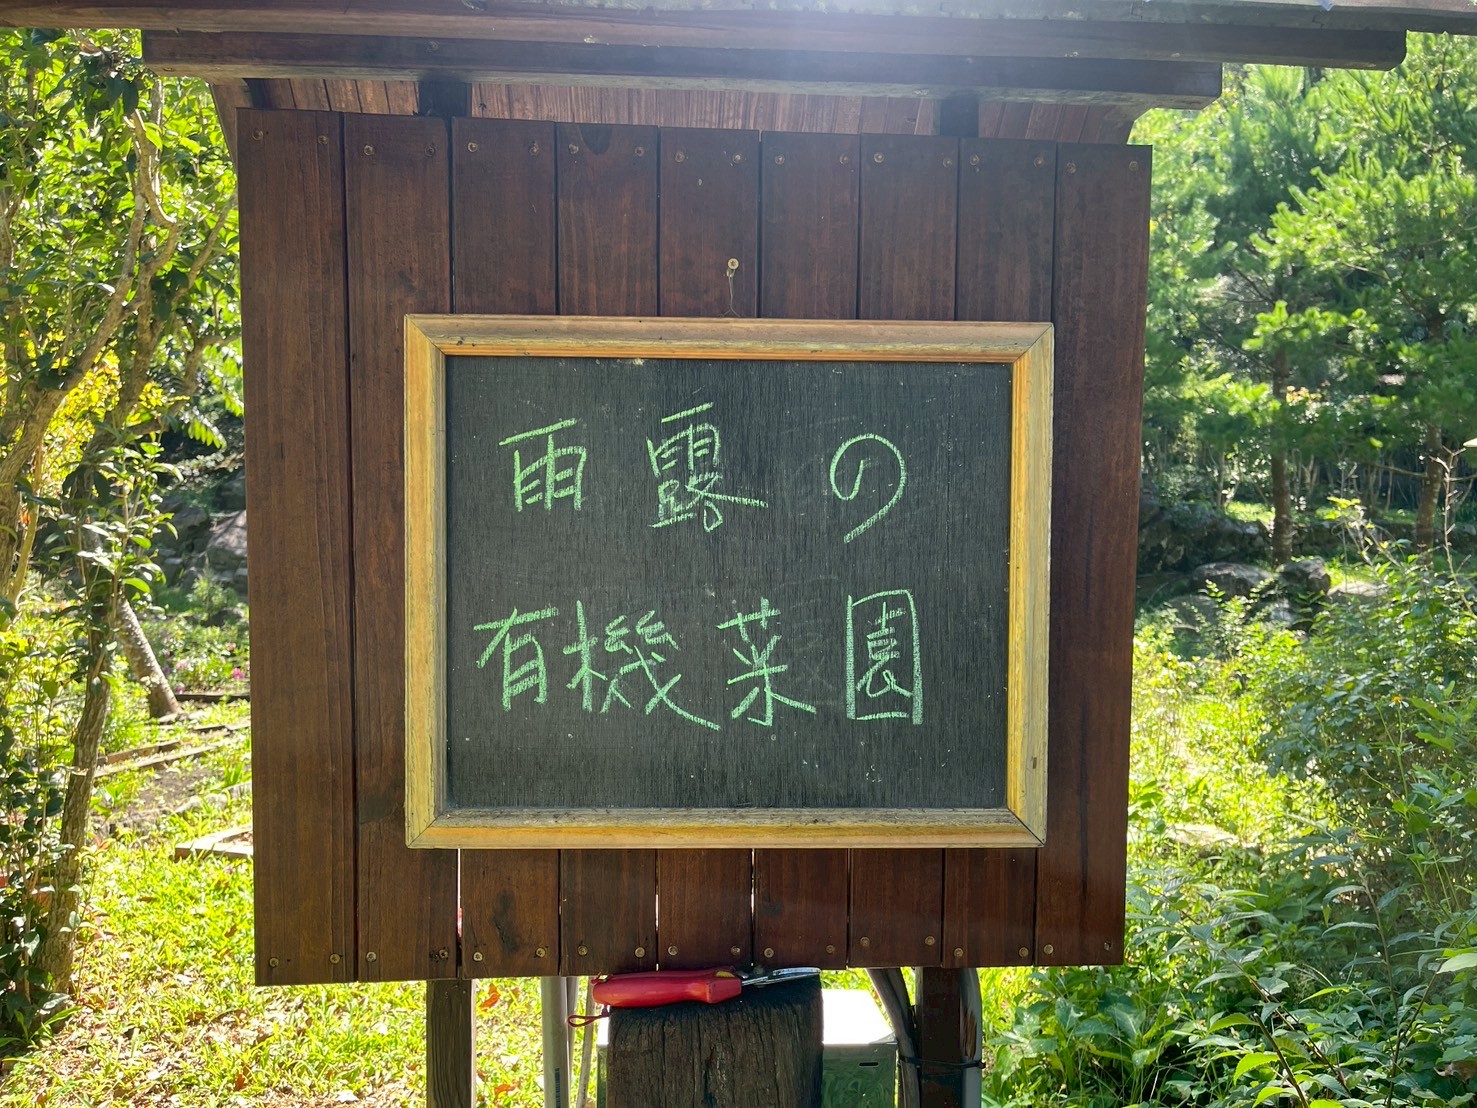 雨露の
有機菜園